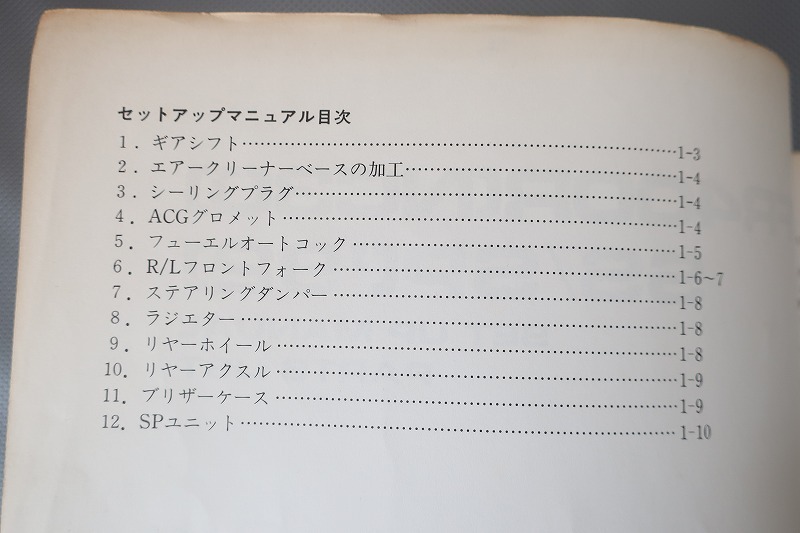 セットアップマニュアル目次
1. ギアシフト……………………………………………………1-3
2. エアークリーナーベースの加工……………………………………1-4
3. シーリングプラグ……………………………………………1-4
4. ACGグロメット………………………………………………1-4
5. フューエルオートコック………………………………………1-5
6. R/Lフロントフォーク…………………………………………1-6〜7
7. ステアリングダンパー…………………………………………1-8
8. ラジエター……………………………………………………1-8
9. リヤーホイール………………………………………………1-8
10. リヤーアクスル………………………………………………1-9
11. ブリザーケース………………………………………………1-9
12. SPユニット……………………………………………………1-10